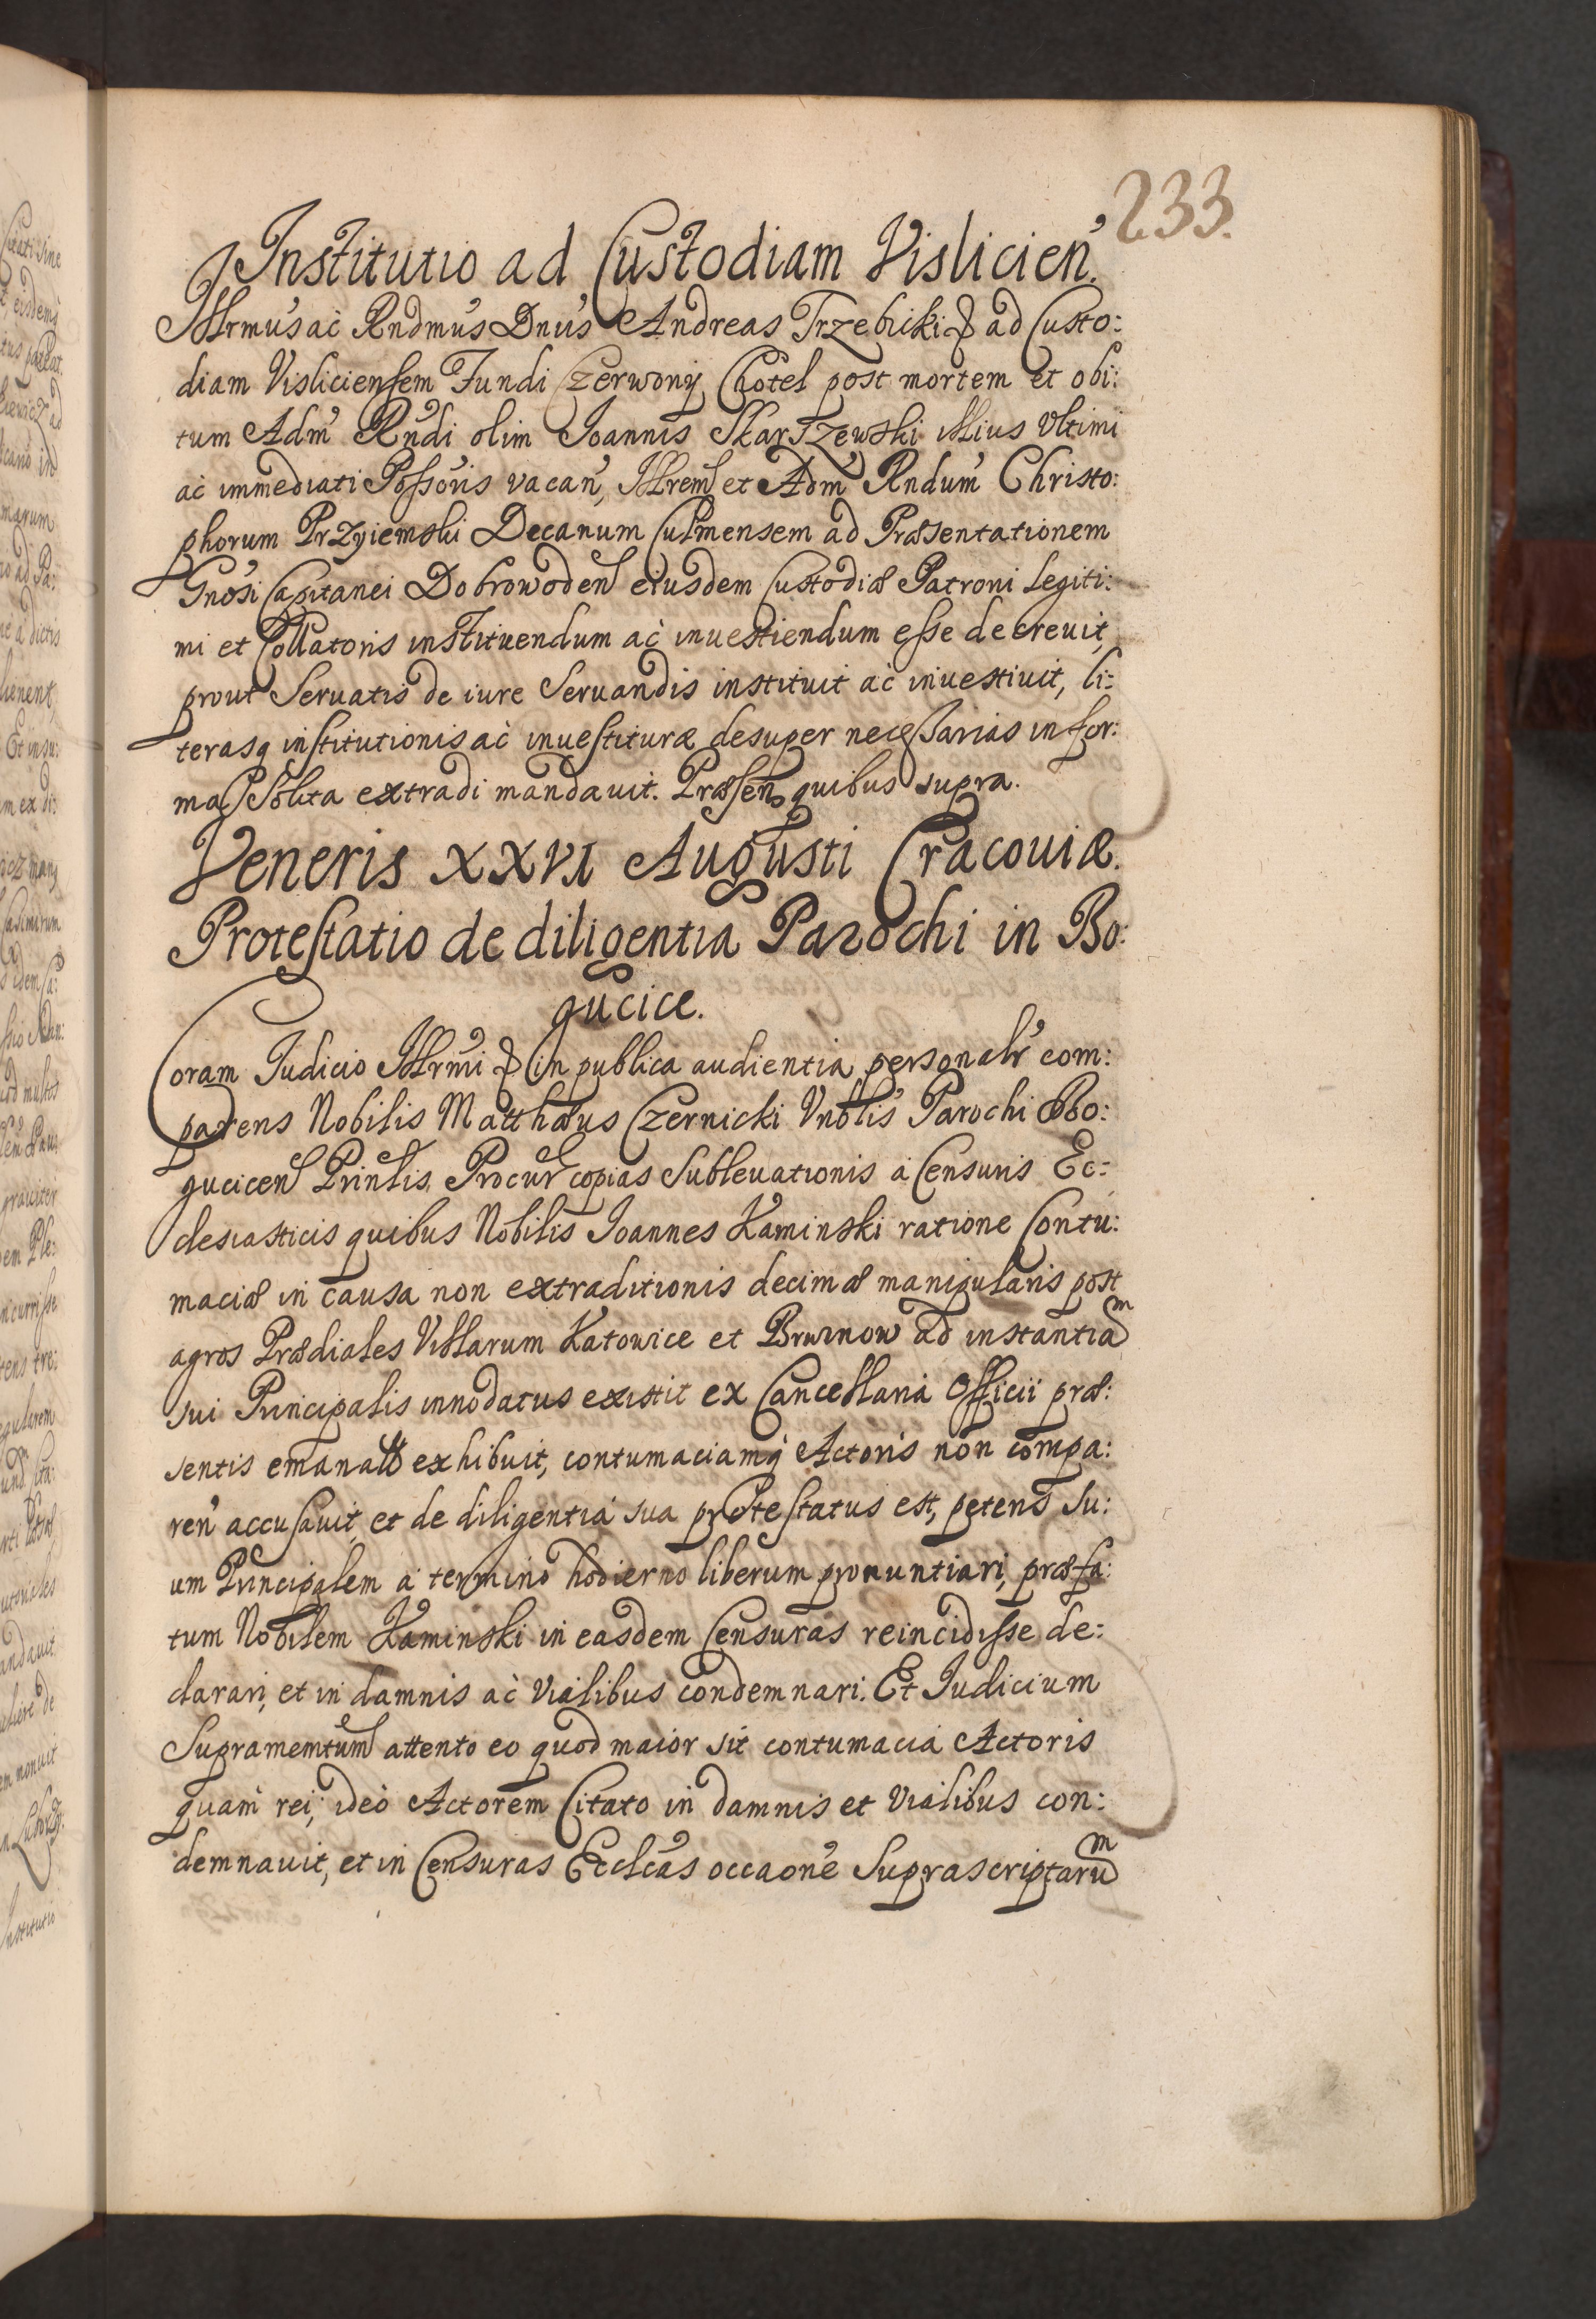 233.
Institutio ad Custodiam Vislicien̕.
Illrmus ac Rndmus Dnus Andreas Trzebicki & ad Custo:
diam Visliciensem Fundi Czerwony Chotel post mortem et obi:
tum Adm Rndi olim Joannis Skarszewski illius Vltimi
ac immediati Possoris vacan, Illrem et Adm Rndum Christo:
phorum Przyiemski Decanum Culmensem ad Præsentationem
Gnosi Capitanei Dobrowoden eiusdem Custodiæ Patroni legiti:
mi et Collatoris instituendum ac inuestiendum esse decreuit,
prout seruatis de iure seruandis instituit ac inuestiuit, li:
terasq institutionis ac inuestituræ desuper necessarias in for:
ma solita extradi mandauit. Præsen quibus supra.
Veneris XXVI Augusti Cracouiæ.
Protestatio de diligentia Parochi in Bo:
gucice.
Coram Iudicio Illrmi & in publica audientia personalr com:
parens Nobilis Matthæus Czernicki Vnblis Parochi Bo:
gucicen Prinlis Procur copias subleuationis a Censuris Ec:
clesiasticis quibus Nobilis Joannes Kaminski ratione Contu:
maciæ in causa non extraditionis decimæ manipularis post
agros Prædiales Villarum Katowice et Brwinow ad instantiam
sui Principalis innodatus existit ex Cancellaria Officii præ:
sentis emanatt exhibuit, contumaciamq Actoris non compa:
ren accusauit et de diligentia sua protestatus est, petens su:
um Principalem a termino hodierno liberum pronuntiari, præfa:
tum Nobilem Kaminski in easdem Censuras reincidisse de:
clarari, et in damnis ac vialibus condemnari. Et Iudicium
Supramemtum attento eo quod maior sit contumacia Actoris
quam rei, ideo Actorem Citato in damnis et vialibus con:
demnauit, et in Censuras Ecclcas occaone suprascriptarum